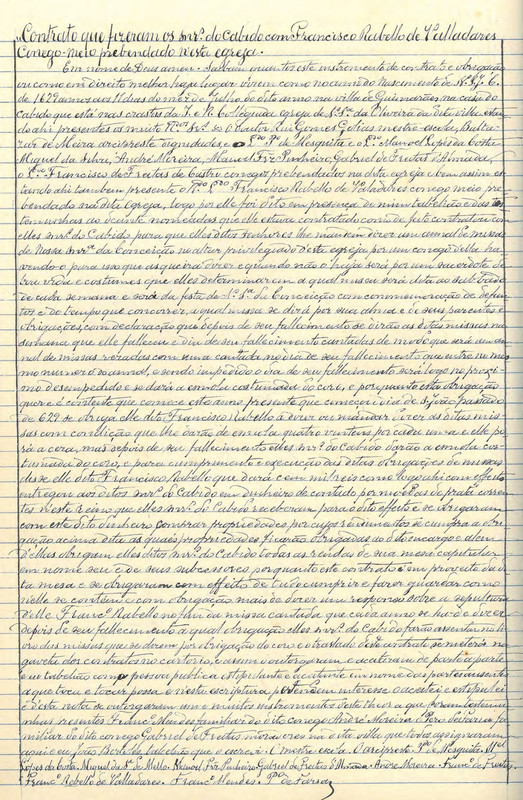 Contrato que fizeram os snr.es do Cabido com Francisco Rabello de Valladares
Conego meio prebendado nesta egreja.
Em nome de Deus amen. Saibam quantos este instrumento de contrato e obrigação
ou como em direito melhor haja logar virem como no anno do Nascimento de N. S. J. C.
de 1629 annos aos 11 dias do mez de Julho do dito anno na villa de Guimarães na casa do
cabido que está nas crastas da I. e R. Collegiada egreja de N. Sr.a da Oliveira da dita villa estan-
do ahi presentes os muito R.dos Snr.es o Doutor Rui Gomes Golias mestre-escola, Balta-
zar de Meira arcipreste dignidades, e o P.e de Mesquita e o L.do Manoel Lopes da Costa
Miguel da Silva, André Moreira, Manoel Frz Pinheiro, Gabriel de Freitas d'Almada,
o Francisco de Freitas de Castro conegos prebendados na dita egreja e bem assim es-
tando ahi tambem presente o R.do Francisco Rabello de Valadares conego meio pre-
bendado na dita egreja, logo por elle foi dito em presença de mim tabellião e das tes-
temunhas ao deante nomeadas que elle estava contratado como de feito contratou com
elles snr.es do Cabido para que elles ditos senhores lhe mandem dizer um annal de missas
de Nossa Snr.a da Conceição no altar privilegiado desta egreja por um conego della ha-
vendo-o para isso que as queira dizer e quando não o haja será por um sacerdote de
boa vida e costumes que elles determinarem a qual missa será dita ao sabbado
de cada semana e será da festa de N. Sr.a da Conceição com commemoração de defun-
tos e do tempo que concorrer, a qual missa se dirá por sua alma e de seus parentes e
obrigações, com declaração que depois de seu fallecimento se dirão as ditas missas na
semana que elle falleceu e dia de seu fallecimento cantadas de modo que será um an-
nal de missas rezadas com uma cantada no dia de seu fallecimento que entre no mes-
mo numero do annal, e sendo impedido o dia do seu fallecimento será logo no proxi-
mo desempedido e se dará a esmola costumada do coro, e porquanto esta obrigação
quer e é contente que comece este anno presente que começou dia de S. João passado
de 629 se obriga elle dito Francisco Rabello a dizer ou mandar dizer as ditas mis-
sas com condição que lhe darão de esmola quatro vintens por cada uma e elle po-
rá a cera, mas depois de seu fallecimento elles snr.es do Cabido darão a esmola cos-
tumada do coro, e para cumprimento e execução das ditas obrigações de missas
disse elle dito Francisco Rabello que dará cem mil reis como logo ahi com effeito
entregou aos ditos snr.es do Cabido em dinheiro de contado por moedas de prata corren-
tes n'este reino que elles snr.es do Cabido receberam para o dito effeito e se obrigaram
com este dito dinheiro comprar propriedades por cujos rendimentos se cumpra a obri-
gação acima dita as quaes propriedades ficarão obrigadas ao dito encargo e alem
d'ellas obrigam elles ditos snr.es do Cabido todas as rendas de sua mesa capitular
em nome seu e de seus successores, porquanto este contrato é em proveito da di-
ta mesa e se obrigaram com effeito de tudo cumprir e fazer guardar como
n'elle se contem com obrigação mais de dizer um responso sobre a sepultura
delle Franc.o Rabello no fim da missa cantada que cada anno se ha-de dizer
depois de seu fallecimento a qual obrigação elles snr.es do Cabido farão assentar no li-
vro das missas que se dizem por obrigação do coro e o traslado deste contrato se meterá na
gaveta dos contratos no cartorio, e assim o outorgaram e aceitaram de parte a parte
e eu tabellião como pessoa publica estipulante e aceitante em nome das partes ausentes
a que toca e tocar possa o n'esta escriptura pertendem interesse o aceitei e estipulei
e desta nota se outorgaram um e muitos instrumentos deste theor a que foram testemu-
nhas presentes Franc.o Mendes familiar do dito conego André Moreira e Pero de Faria fa-
miliar do dito conego Gabriel de Freitas moradores na dita villa que todos assignaram
aqui e eu João tabellião que o escrevi. O mestre escola. O arcipreste. de Mesquita. M.el
Lopes da Costa. Miguel da S.a de Mello. Manoel Frz Pinheiro. Gabriel de Freitas d'Almada. André Moreira. Franc.o de Freitas.
Franc.o Rebello de Valladares. Franc.o Mendes. P.o de Faria